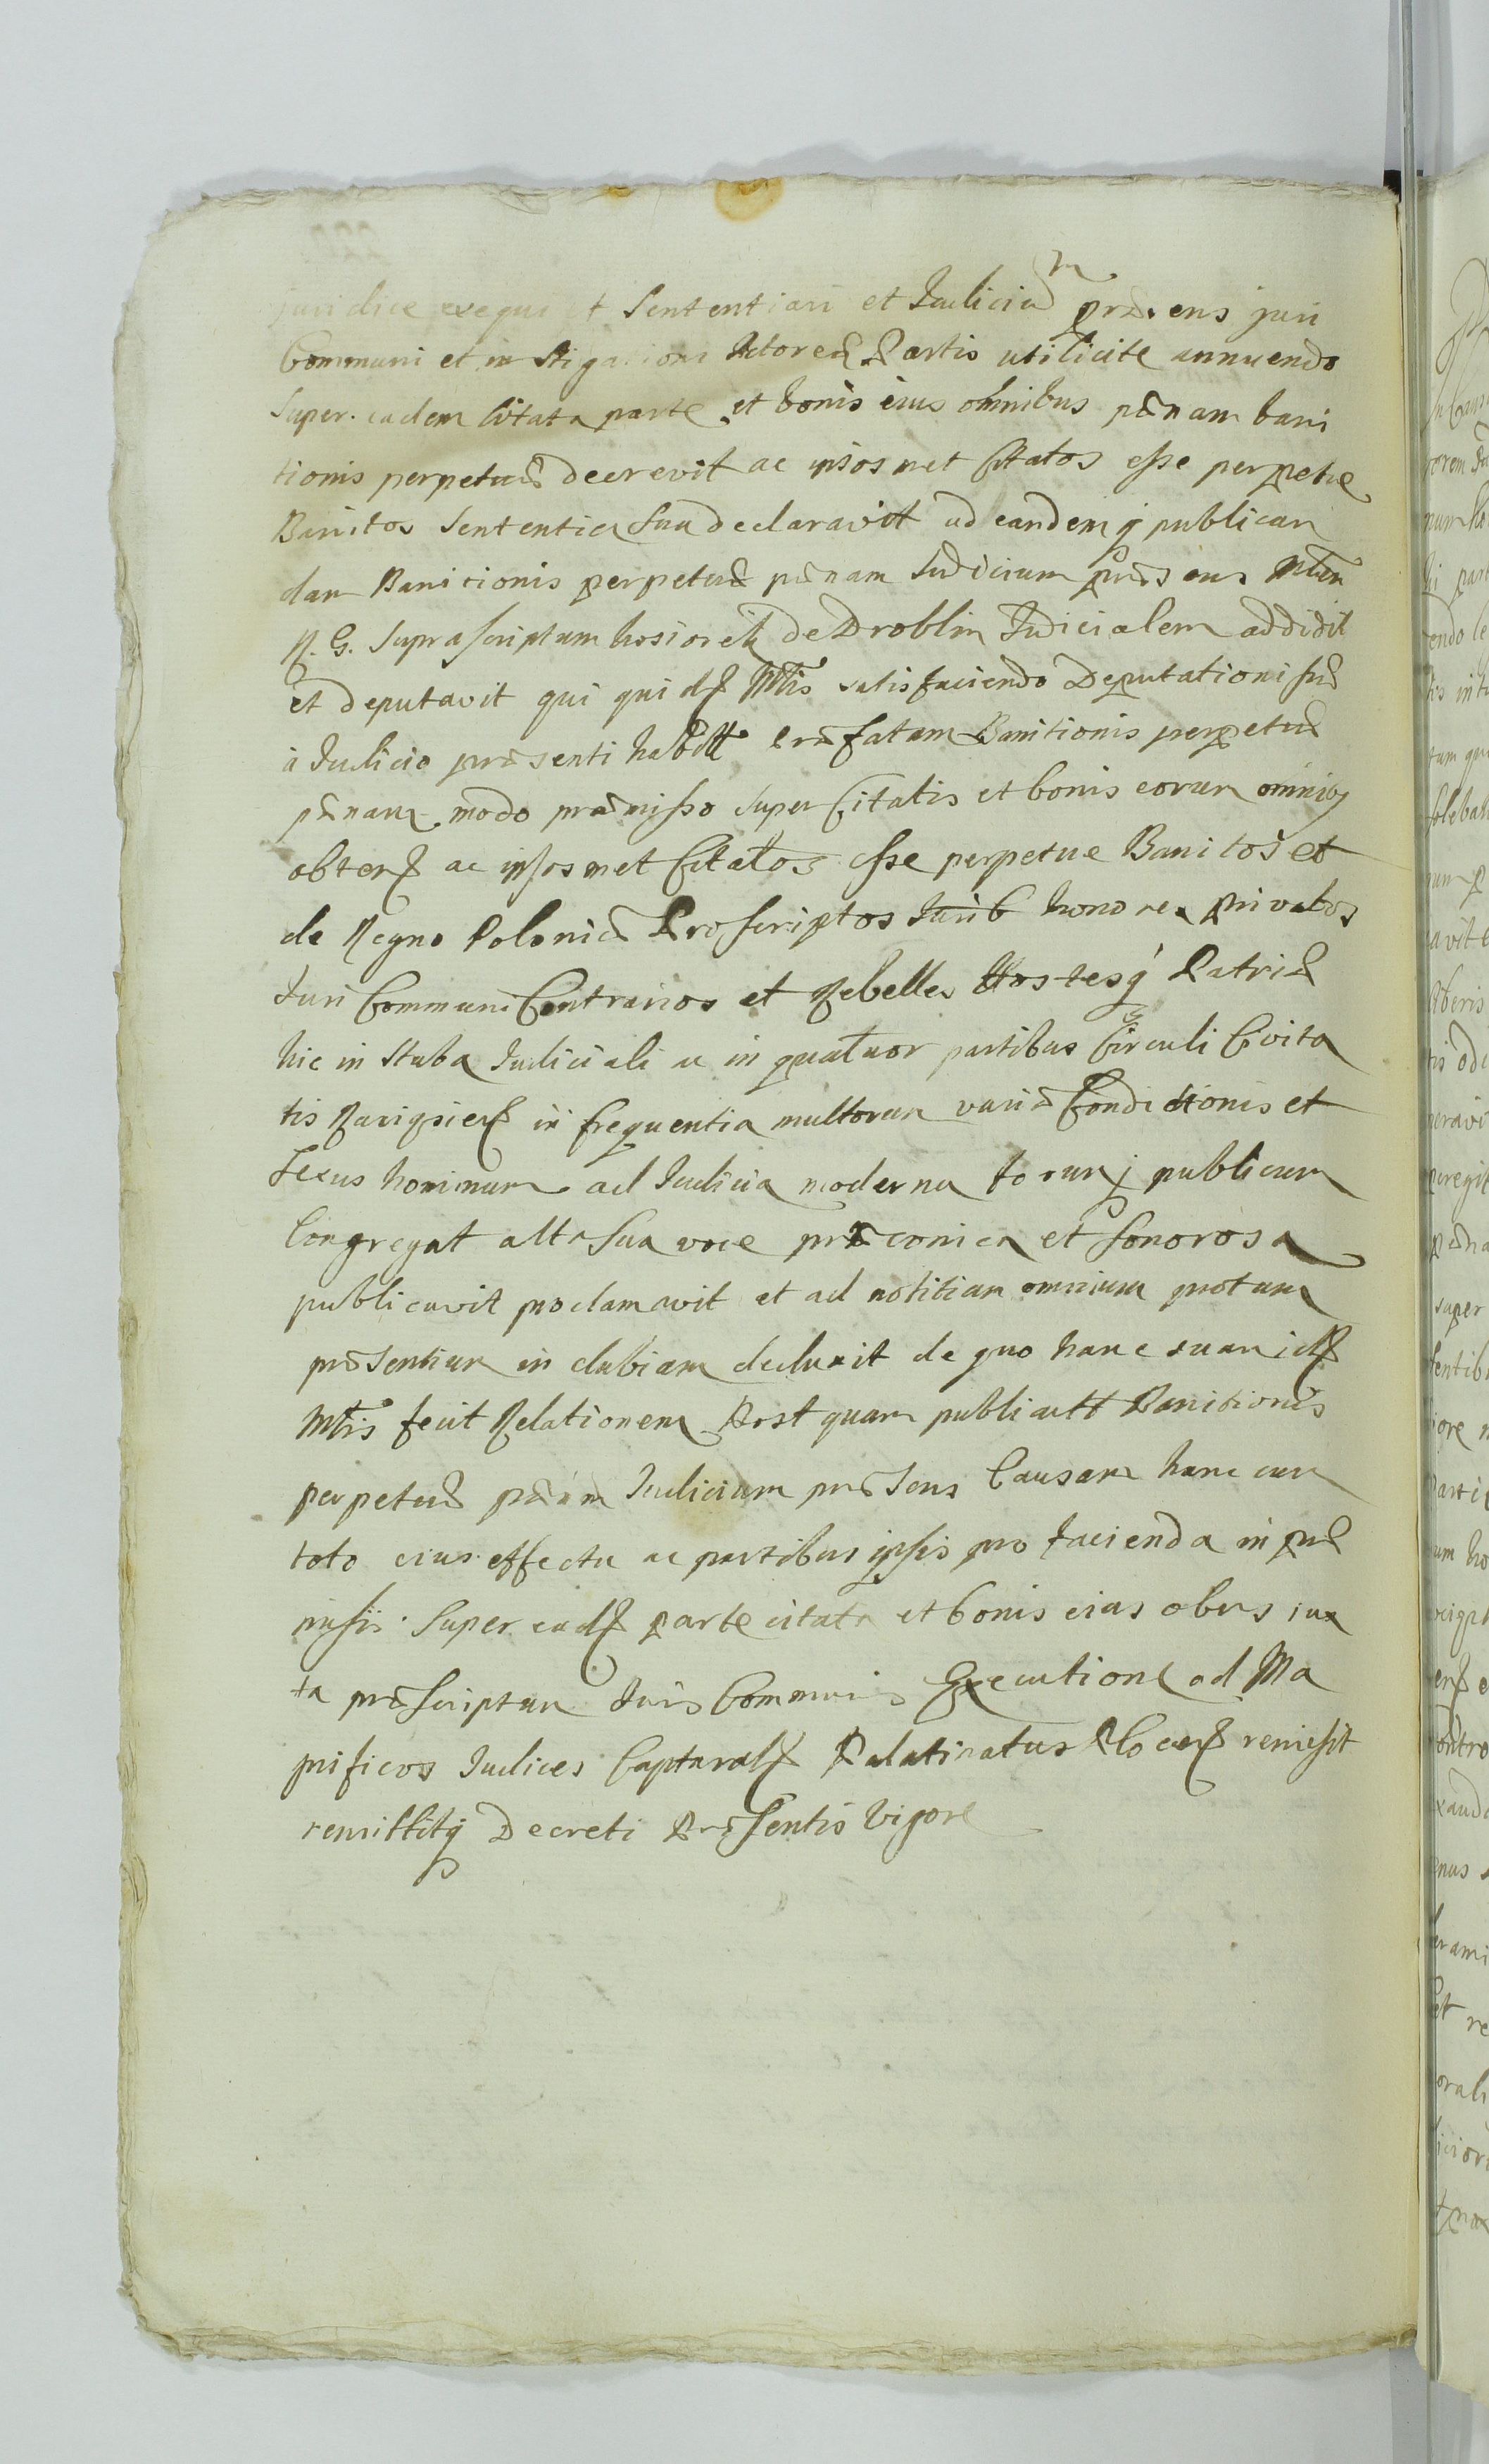 Juridice exequi et Sententiari et Judicium præsens juri
Communi et instigationi Actoreæ Partis utilicite annuendo
super eadem Citata parte et bonis eius omnibus pænam bani
tionis perpetuæ decrevit ac ipsosmet Citatos esse perpetue
Banitos Sententia sua declaravit ad eandemq publican
dam Banitionis perpetuæ pænam Judicium præsens Mtem
R. G. suprascriptum de Droblin Judicialem addidit
et deputavit qui quidẽ Mtis satisfaciendo Deputationi suæ
à Judicio præsenti habitæ præfatam Banitionis perpetuæ
pænam modo præmisso super Citatis et bonis eorum omnibq
obtent ac ipsosmet Citatos esse perpetue Banitos et
de Regno Poloniæ Proscriptos honore privatos
Juri Communi Contrarios et Rebelles Hostesq Patriæ
hic in Stuba Judiciali ac in quatuor partibus Circuli Civita
tis in frequentia multorum variæ Condictionis et
Sexus hominum ad Judicia moderna forumq publicum
Congregat alta sua voce præconica et sonorosa
publicavit proclamavit et ad notitiam omnium
præsentium in dubiam deduxit de quo hanc suam idẽ
Mtis fecit Relationem Post quam publicatt Banitionis
perpetuæ pænam Judicium præsens Causam hanc cum
toto eius effectu ac partibus ipsis pro facienda in præ
missis super eadẽ parte citata et bonis eius obvs iux
ta præscriptum Juris Communis Executione ad Ma
gnificos Judices Capturalẽ Palatinatus Plocen remisit
remittitq Decreti Præsentis vigore